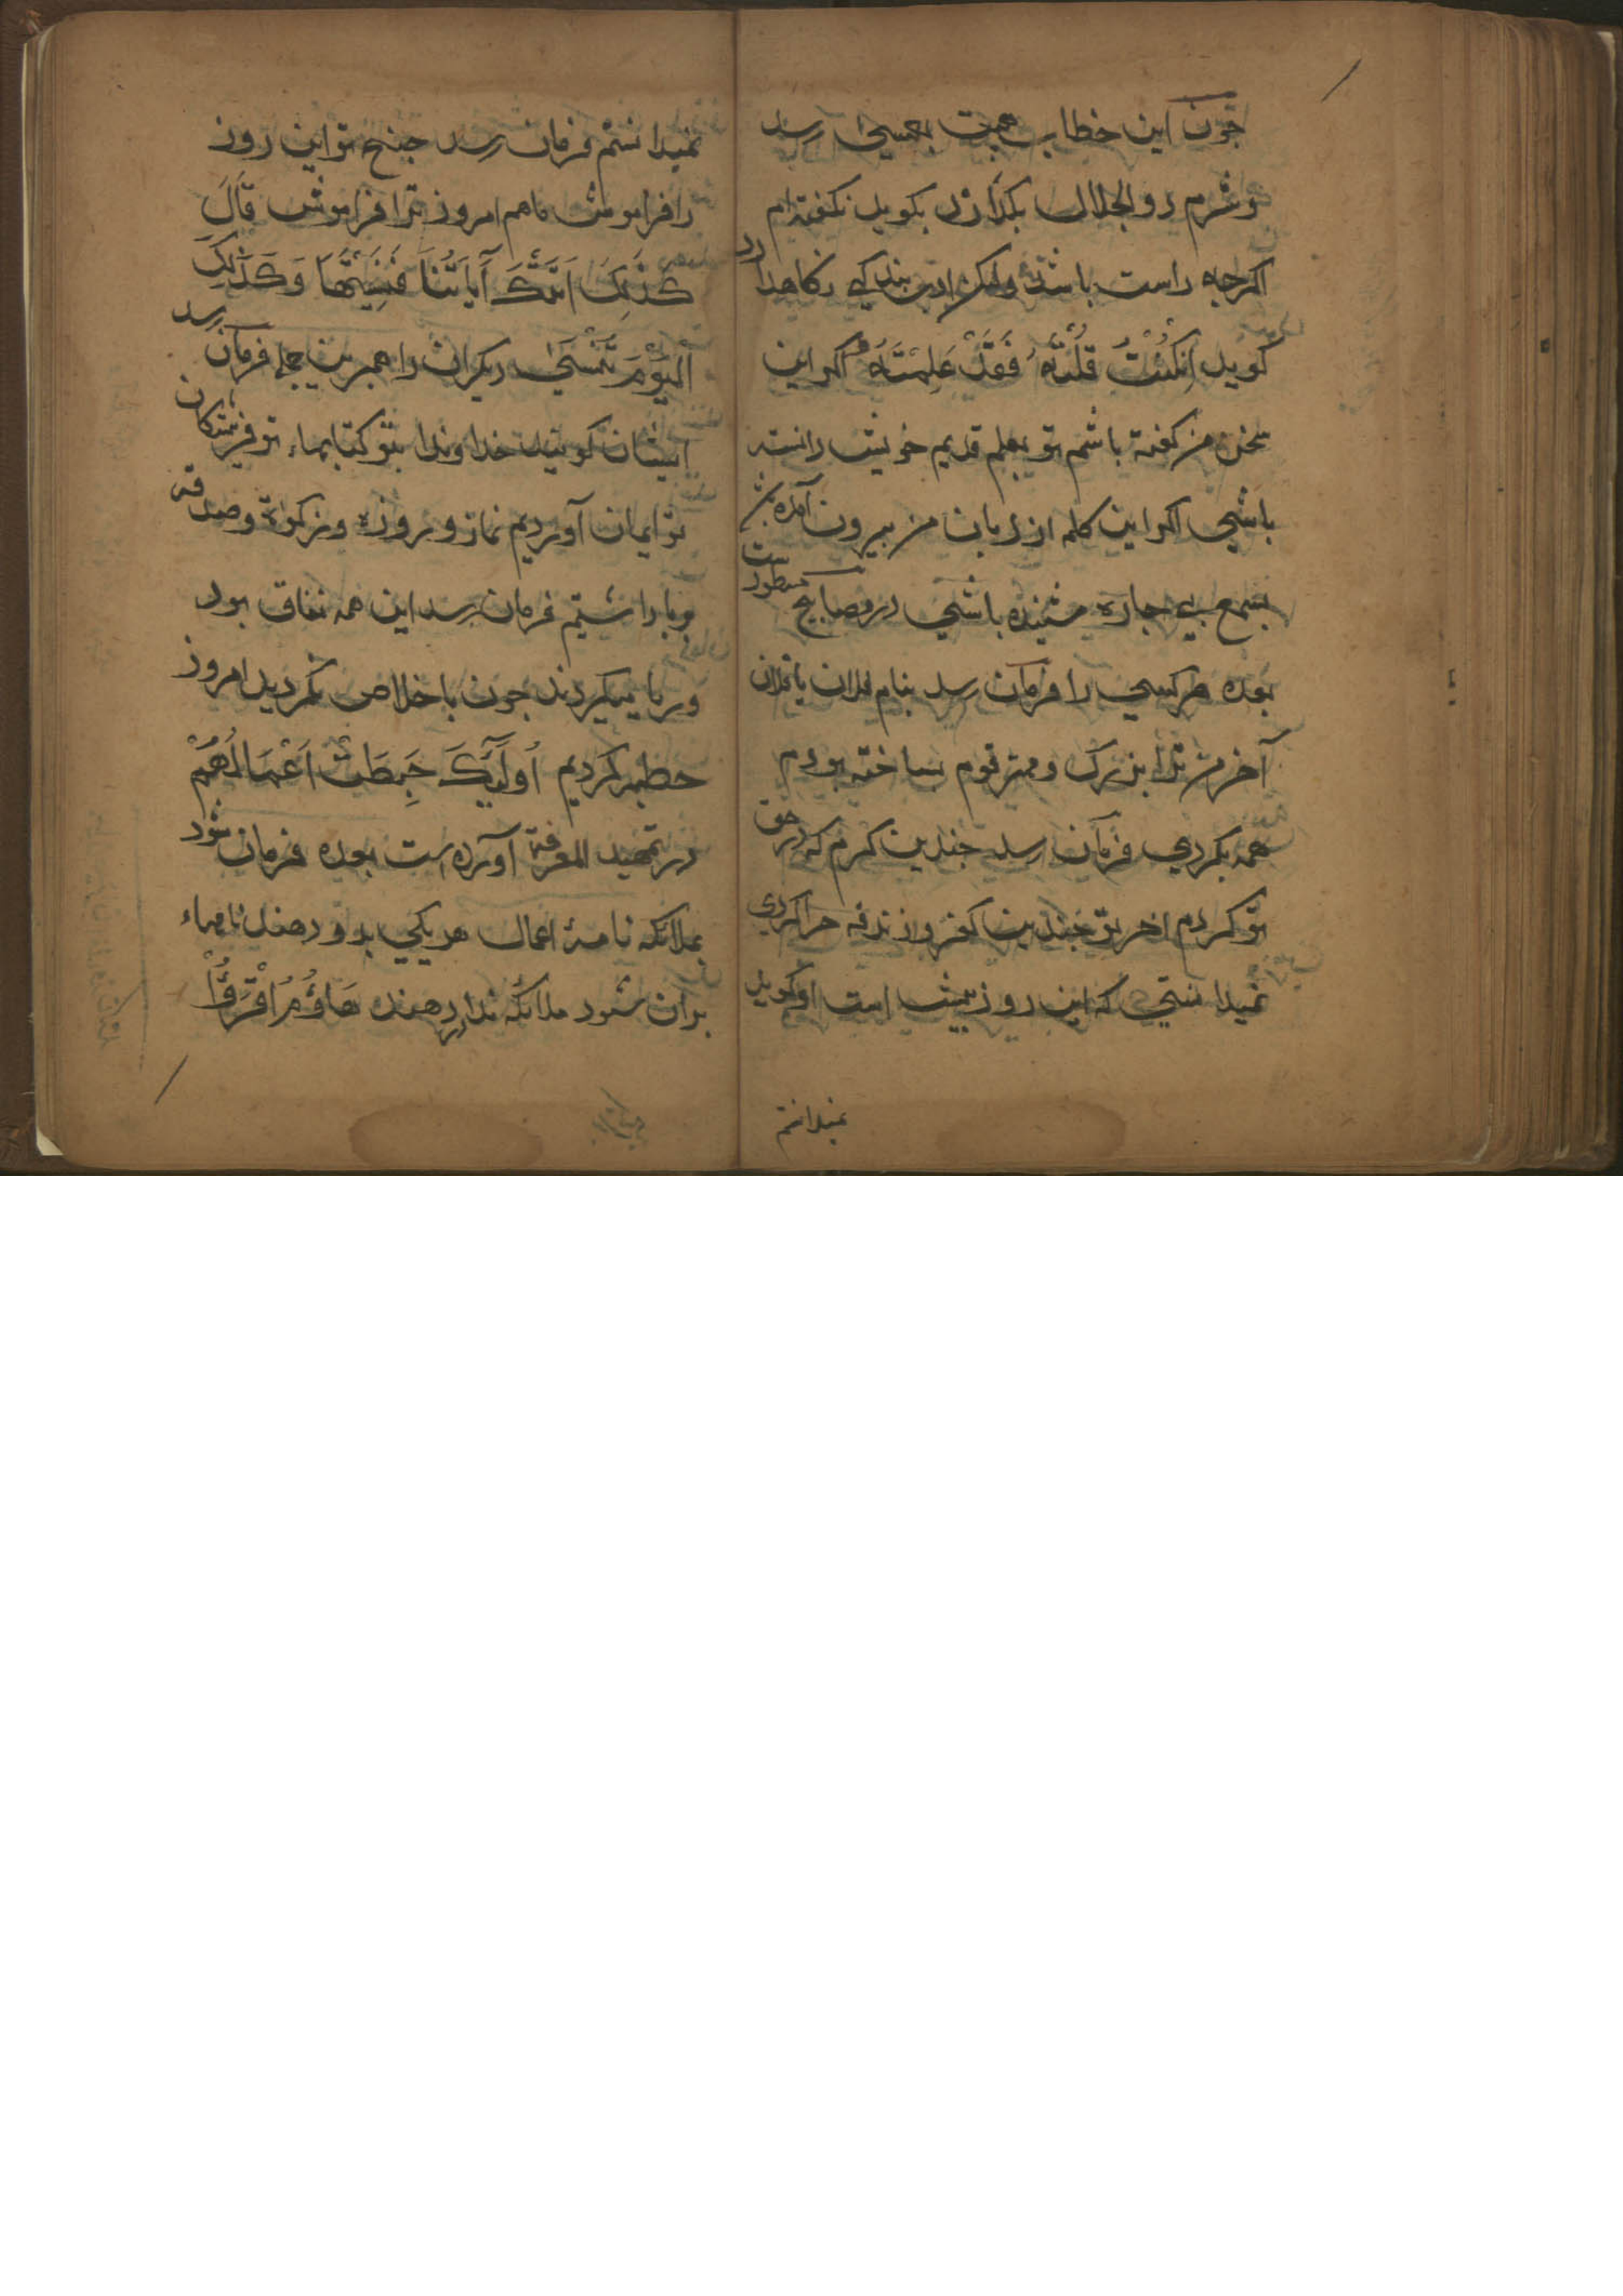 چون این خطاب هیبت بعیسی رسد
و شرم ذو الجلال بگذارد بگوید نگفته‌ام
اکرچه راست باشد ولیکن ادب بندکی نکاهدارد
کوید اِنْكُنْتُ قُلْتُهُ فَقَدْ عَلِمْتَهُ اکر این
سخن من کفته باشم تو بعلم قدیم خویش دانسته
باشی اکر این کلمه از زبان من بیرون آمده باشد
بسمع بی جارده شنیده باشی در مصابیح مسطورست
بعده هر کسی را فرمان رسد بنام فلان یا فلان
آخر من ترا بزرک و مهتر قوم ساخته بودم
همه بکردی فرمان رسد جندین کرم که در حق
تو کردم اخر تو جندین کفر و زندقه جرا کردی
نمیدانستی که این روز پیش است او کوید
نمیدانستم
نمیدانستم فرمان رسد جنانچ تو این روز
را فراموش ما هم امروز ترا فراموش قَالَ
كَذٰلِكَ اَتَتْكَ آيَاتُنَا فَنَسِيْتَهَا وَكَذٰلِكَ
الْيَوْمَ تُنْسٰى دیکران را همبرین جمله فرمان رسد
ایشان کویند خداوندا بتو کتابهاء تو فرشتکان
تو ایمان آوردیم نماز و روزه و زکوة و صدقه
بربا داشتیم فرمان رسد این همه نفاق بود
و ریا میکردند جون با خلاص نکردید امروز
حطبه کردیم اُولٰئِكَ حَبِطَتْ اَعْمَالُهُمْ
در تمهید المعرفة آورده است بعده فرمان شود
بملائکه نامۀ اعمال هر یکی بدو دهند نامهاء
بران شود ملائکه ندا در دهند هَاؤُمُ اقْرَؤُا